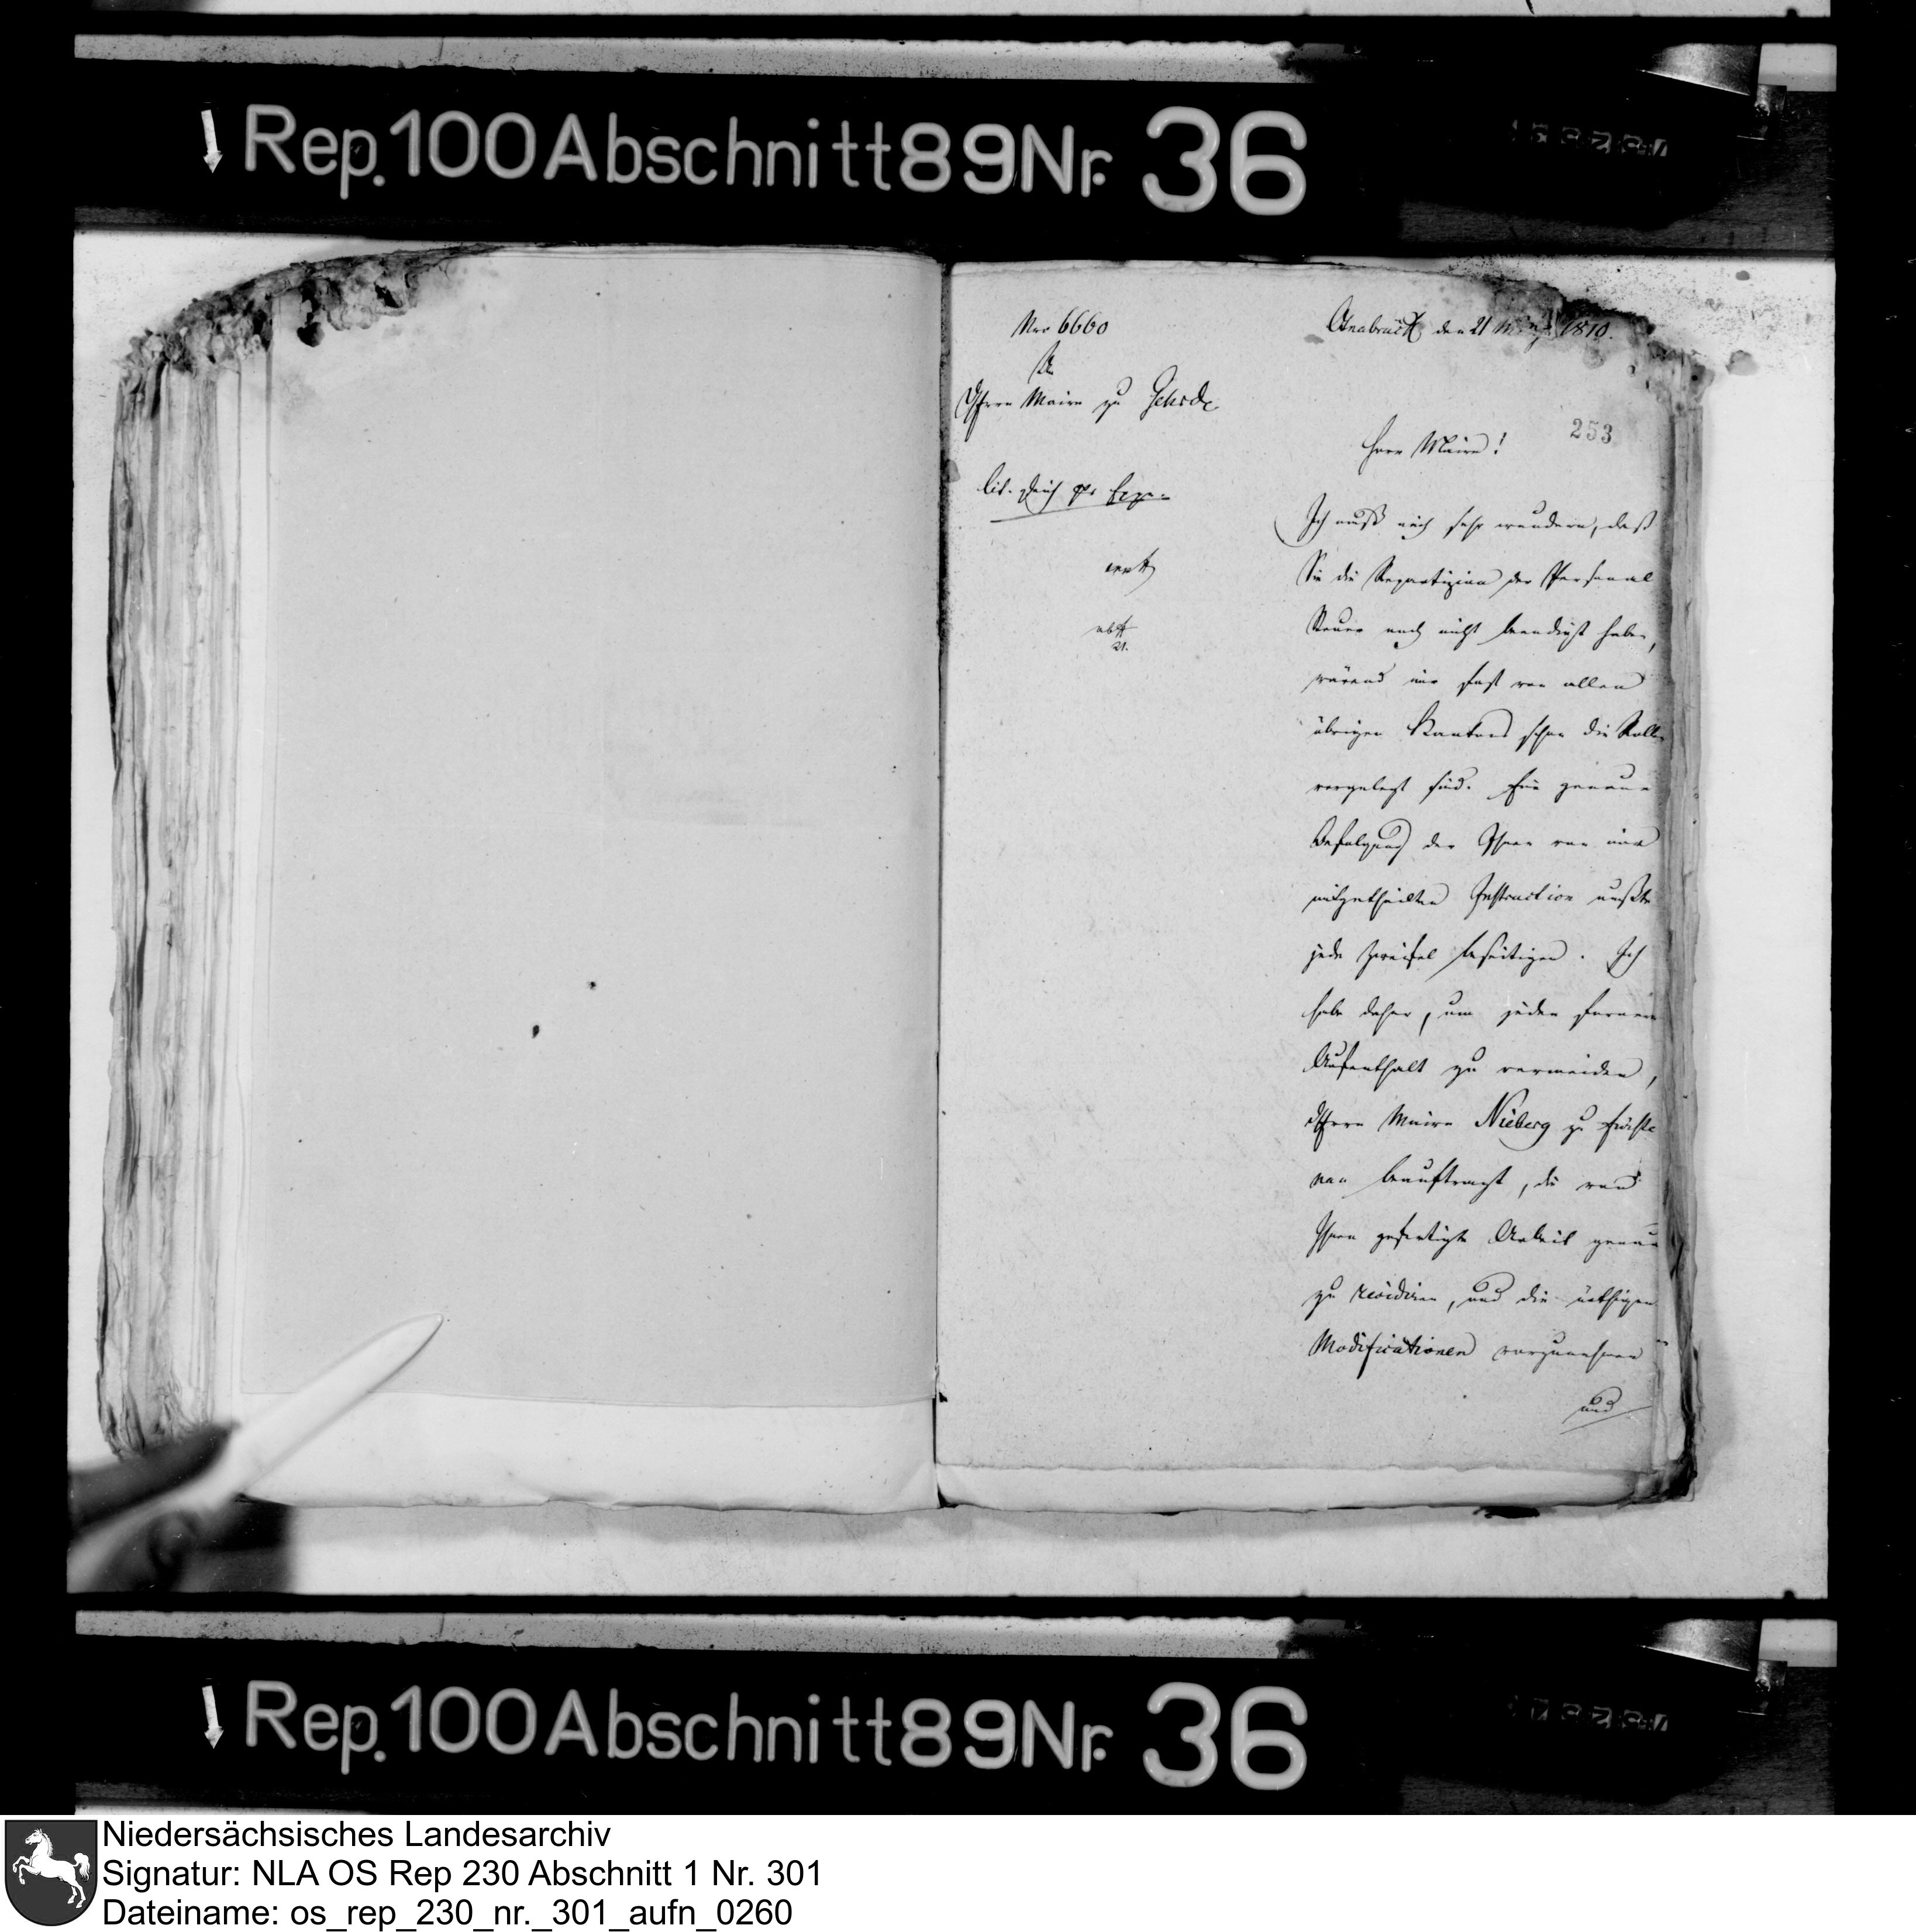 Rep.100Abschnitt89Nr. 36
Nro 6660
An
Herrn Maire zu Gehrde
cit. gleich pr Exp.
Osnabrück den 21 März 1810.
253
Herr Maire!
Ich muß mich sehr wundern, daß
Sie die Repartizion der Personal
Steuer noch nicht beendigt haben,
wärend mir fast von allen
übrigen Kantons schon die Rollen
vorgelegt sind. Eine genaue
Befolgung der Ihnen von mir
mitgetheilten Instruction mußte
jede Zweifel beseitigen. Ich
habe daher, um jeden fernern
Aufenthalt zu vermeiden,
Herrn Maire Nieberg zu Fürste
nau beauftragt, die von
Ihnen gefertigte Arbeit genau
zu revidiren, und die nöthigen
Modificationen vorzunehmen
und
Rep.100Abschnitt89Nr. 36
Niedersächsisches Landesarchiv
Signatur: NLA OS Rep 230 Abschnitt 1 Nr. 301
Dateiname: os_rep_230_nr._301_aufn_0260